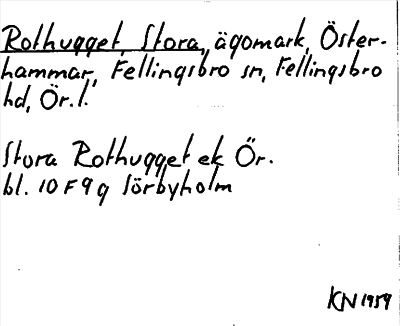 Rothugget, Stora, ägomark, Öster-
hammar, Fellingsbro sn, Fellingsbro
hd, Ör. l.
Stora Rothugget ek Ör.
bl. 10 F 9 g Sörbyholm
KN 1959